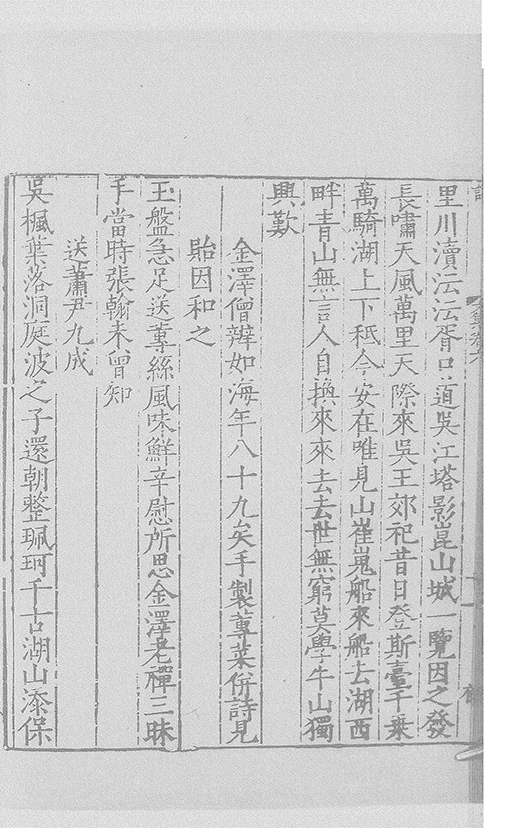 里川瀆沄沄胥口道吳江塔影崑山城一覽因之發
長嘯天風萬里天際來吳王郊祀昔日登斯臺千乘
萬騎湖上下秪今安在唯見山崔嵬船來船去湖西
畔青山無言人自換來來去去世無窮莫學牛山獨
興歎
金澤僧辨如海年八十九矣手製蓴菜併詩見
貽因和之
玉盤急足送蓴絲風味鮮辛慰所思金澤老禪三昧
手當時張翰未曾知
送蕭尹九成
吳楓葉落洞庭波之子還朝整珮珂千古湖山添保